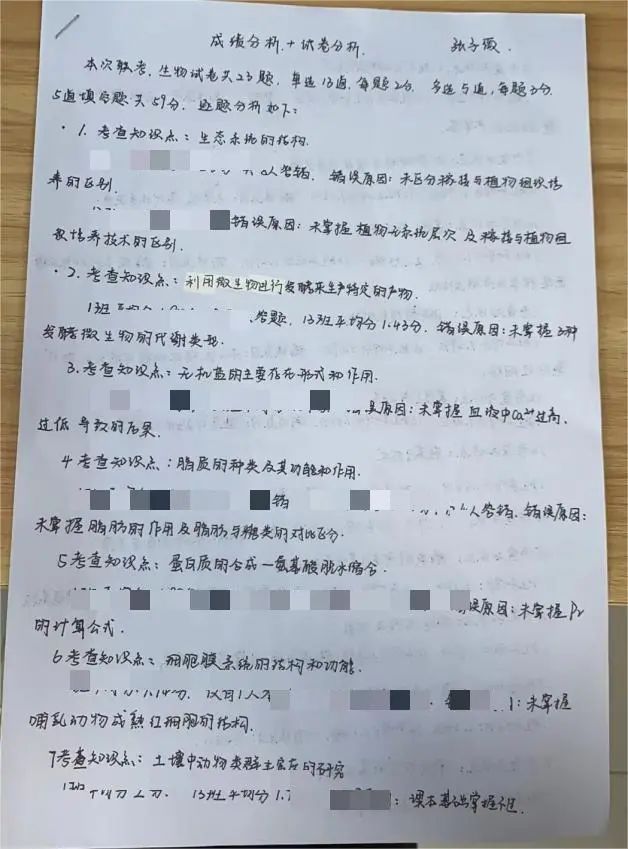 成绩分析+试卷分析. 张子薇.
本次联考,生物试卷共23题,单选13道,每题2分,多选5道,每题3分.
5道填空题共59分,逐题分析如下:
·1. 考查知识点:生态系统的结构.
人答错,错误原因:未区分嫁接与植物组织培
养的区别.
错误原因:未掌握植物系统层次及嫁接与植物组
织培养技术的区别.
·2. 考查知识点:利用微生物进行发酵来生产特定的产物.
1班平均分 答题,13班平均分1.43分,错误原因:未掌握3种
发酵微生物的代谢类型.
3.考查知识点:无机盐的主要存在形式和作用.
误原因:未掌握血液中Ca²⁺过高,
过低导致的后果.
4考查知识点:脂质的种类及其功能和作用.
错 人答错,错误原因:
未掌握脂肪的作用及脂肪与糖类的对比区分.
5考查知识点:蛋白质的合成—氨基酸脱水缩合.
错误原因:未掌握Pr
的计算公式.
6考查知识点:细胞膜系统的结构和功能.
仅有1人 :未掌握
哺乳动物成熟红细胞的结构.
7考查知识点:土壤中动物类群丰富度的研究
13班平均分1.7 :课本基础掌握不足.